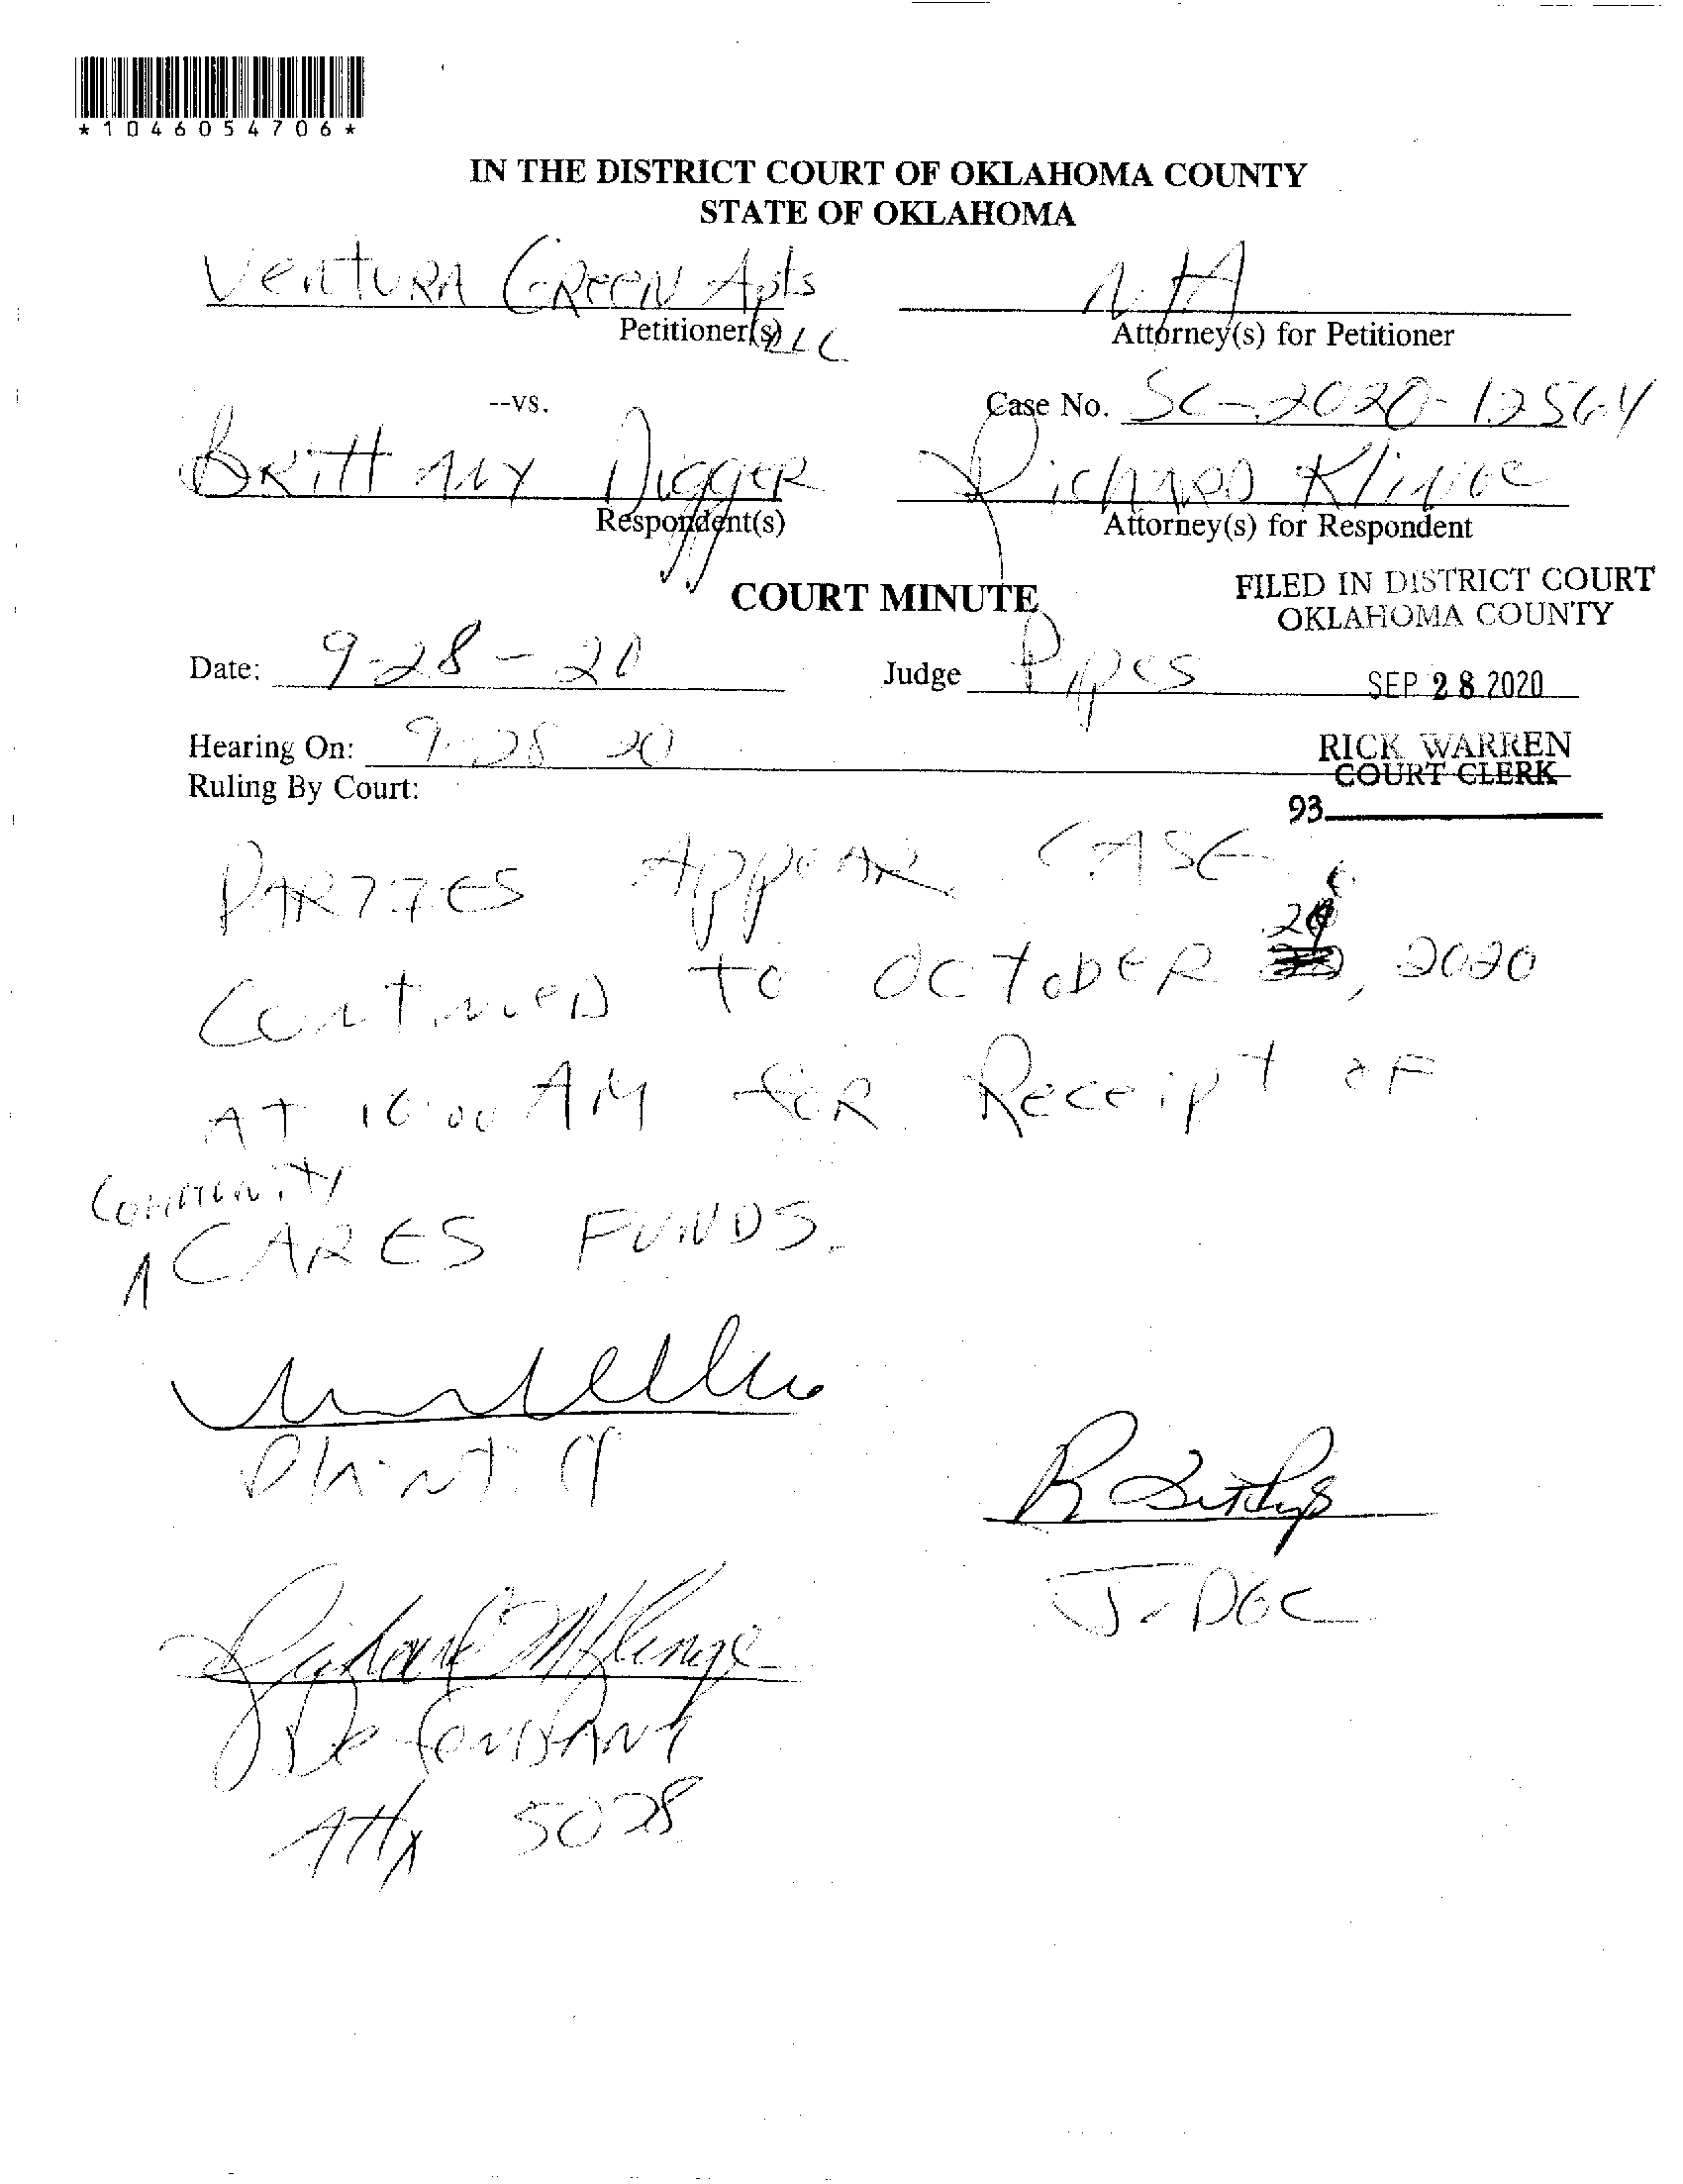 *1046054706*
IN THE DISTRICT COURT OF OKLAHOMA COUNTY
STATE OF OKLAHOMA
Ventura Green Apts LLC
Petitioner(s)
N/A
Attorney(s) for Petitioner
--vs.
Case No. SC-2020-12564
Brittany Digger
Respondent(s)
Richard Klinge
Attorney(s) for Respondent
COURT MINUTE
FILED IN DISTRICT COURT
OKLAHOMA COUNTY
Date: 9-28-20
Judge Pipes
SEP 28 2020
Hearing On: 9-28-20
RICK WARREN
COURT CLERK
Ruling By Court:
93
PARTIES APPEAR. CASE
Continued to OCTOBER , 2020
AT 10:00 AM for Receipt of
Community
CARES FUNDS.
Plaintiff
Richard M Klinge
Defendant
Atty 5028